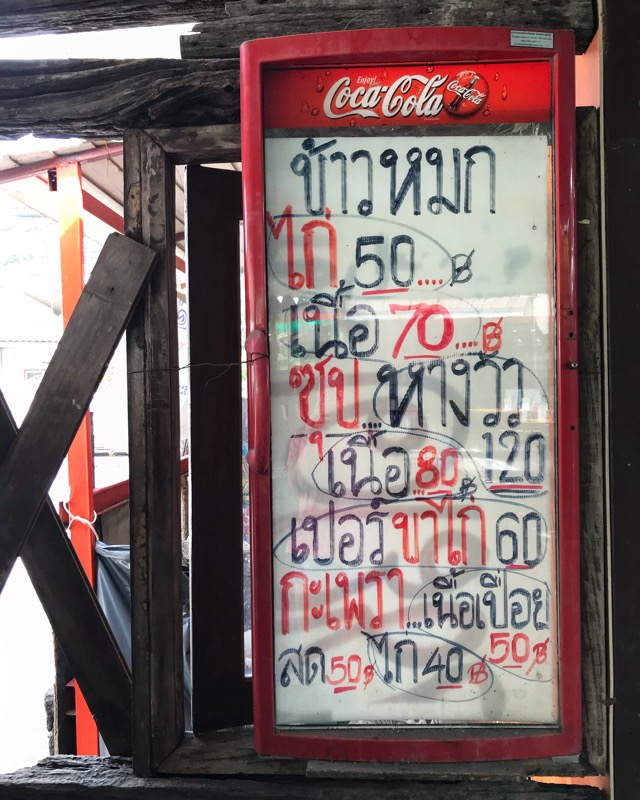 Enjoy!
Coca-Cola Coca-Cola
ข้าวหมก
ไก่ 50....฿
เนื้อ 70....฿
ซุป....หางวัว
เนื้อ...80฿ 120
เปอร์ ขาไก่ 60
กะเพรา...เนื้อเปื่อย
สด 50฿ ไก่ 40฿ 50฿